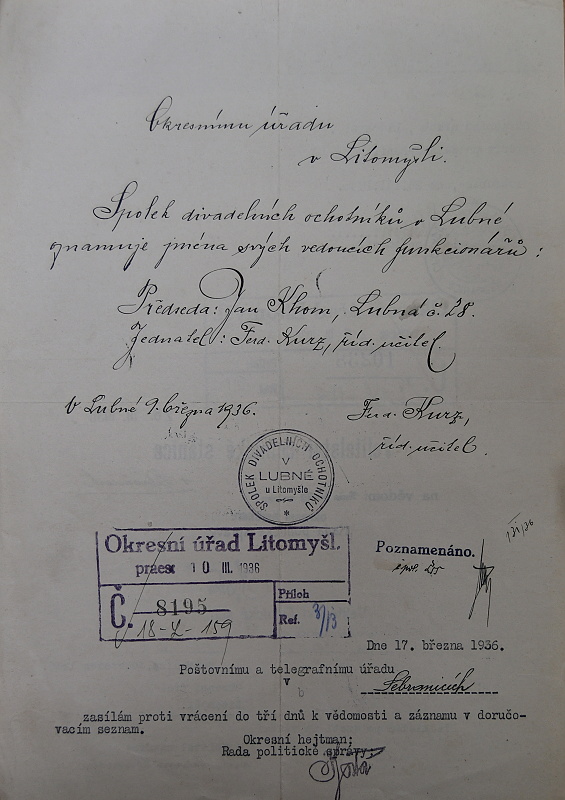 Okresnímu úřadu
v Litomyšli.
Spolek divadelních ochotníků v Lubné
znamuje jména svých vedoucích funkcionářů :
Předseda: Jan Khom, Lubná č. 28.
Jednatel : Ferd. Kurz, říd. učitel.
V Lubné 9. března 1936.
Ferd. Kurz,
říd. učitel.
SPOLEK DIVADELNÍCH OCHOTNÍKŮ
V
LUBNÉ
u Litomyšle
*
Okresní úřad Litomyšl.
praes 10 III. 1936
Č. 8195
Příloh
18-L-159
Ref.
Poznamenáno.
Dne 17. března 1936.
Poštovnímu a telegrafnímu úřadu
v
Sebranicích
zasílám proti vrácení do tří dnů k vědomosti a záznamu v doručo-
vacím seznam.
Okresní hejtman:
Rada politické správy: